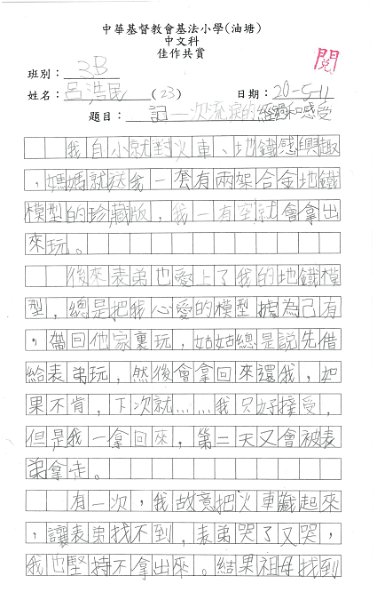 中華基督教會基法小學(油塘)
中文科
佳作共賞
閱
班別：3B
姓名：呂浩民(23) 日期：20-5-11
題目：記一次流淚的經過和感受
我自小就對火車、地鐵感興趣
，媽媽就送我一套有兩架合金地鐵
模型的珍藏版，我一有空就會拿出
來玩。
後來表弟也愛上了我的地鐵模
型，總是把我心愛的模型據為己有
，帶回他家裏玩，姑姑總是說先借
給表弟玩，然後會拿回來還我，如
果不肯，下次就……我只好接受，
但是我一拿回來，第二天又會被表
弟拿走。
有一次，我故意把火車藏起來
，讓表弟找不到，表弟哭了又哭，
我也堅持不拿出來。結果祖母找到